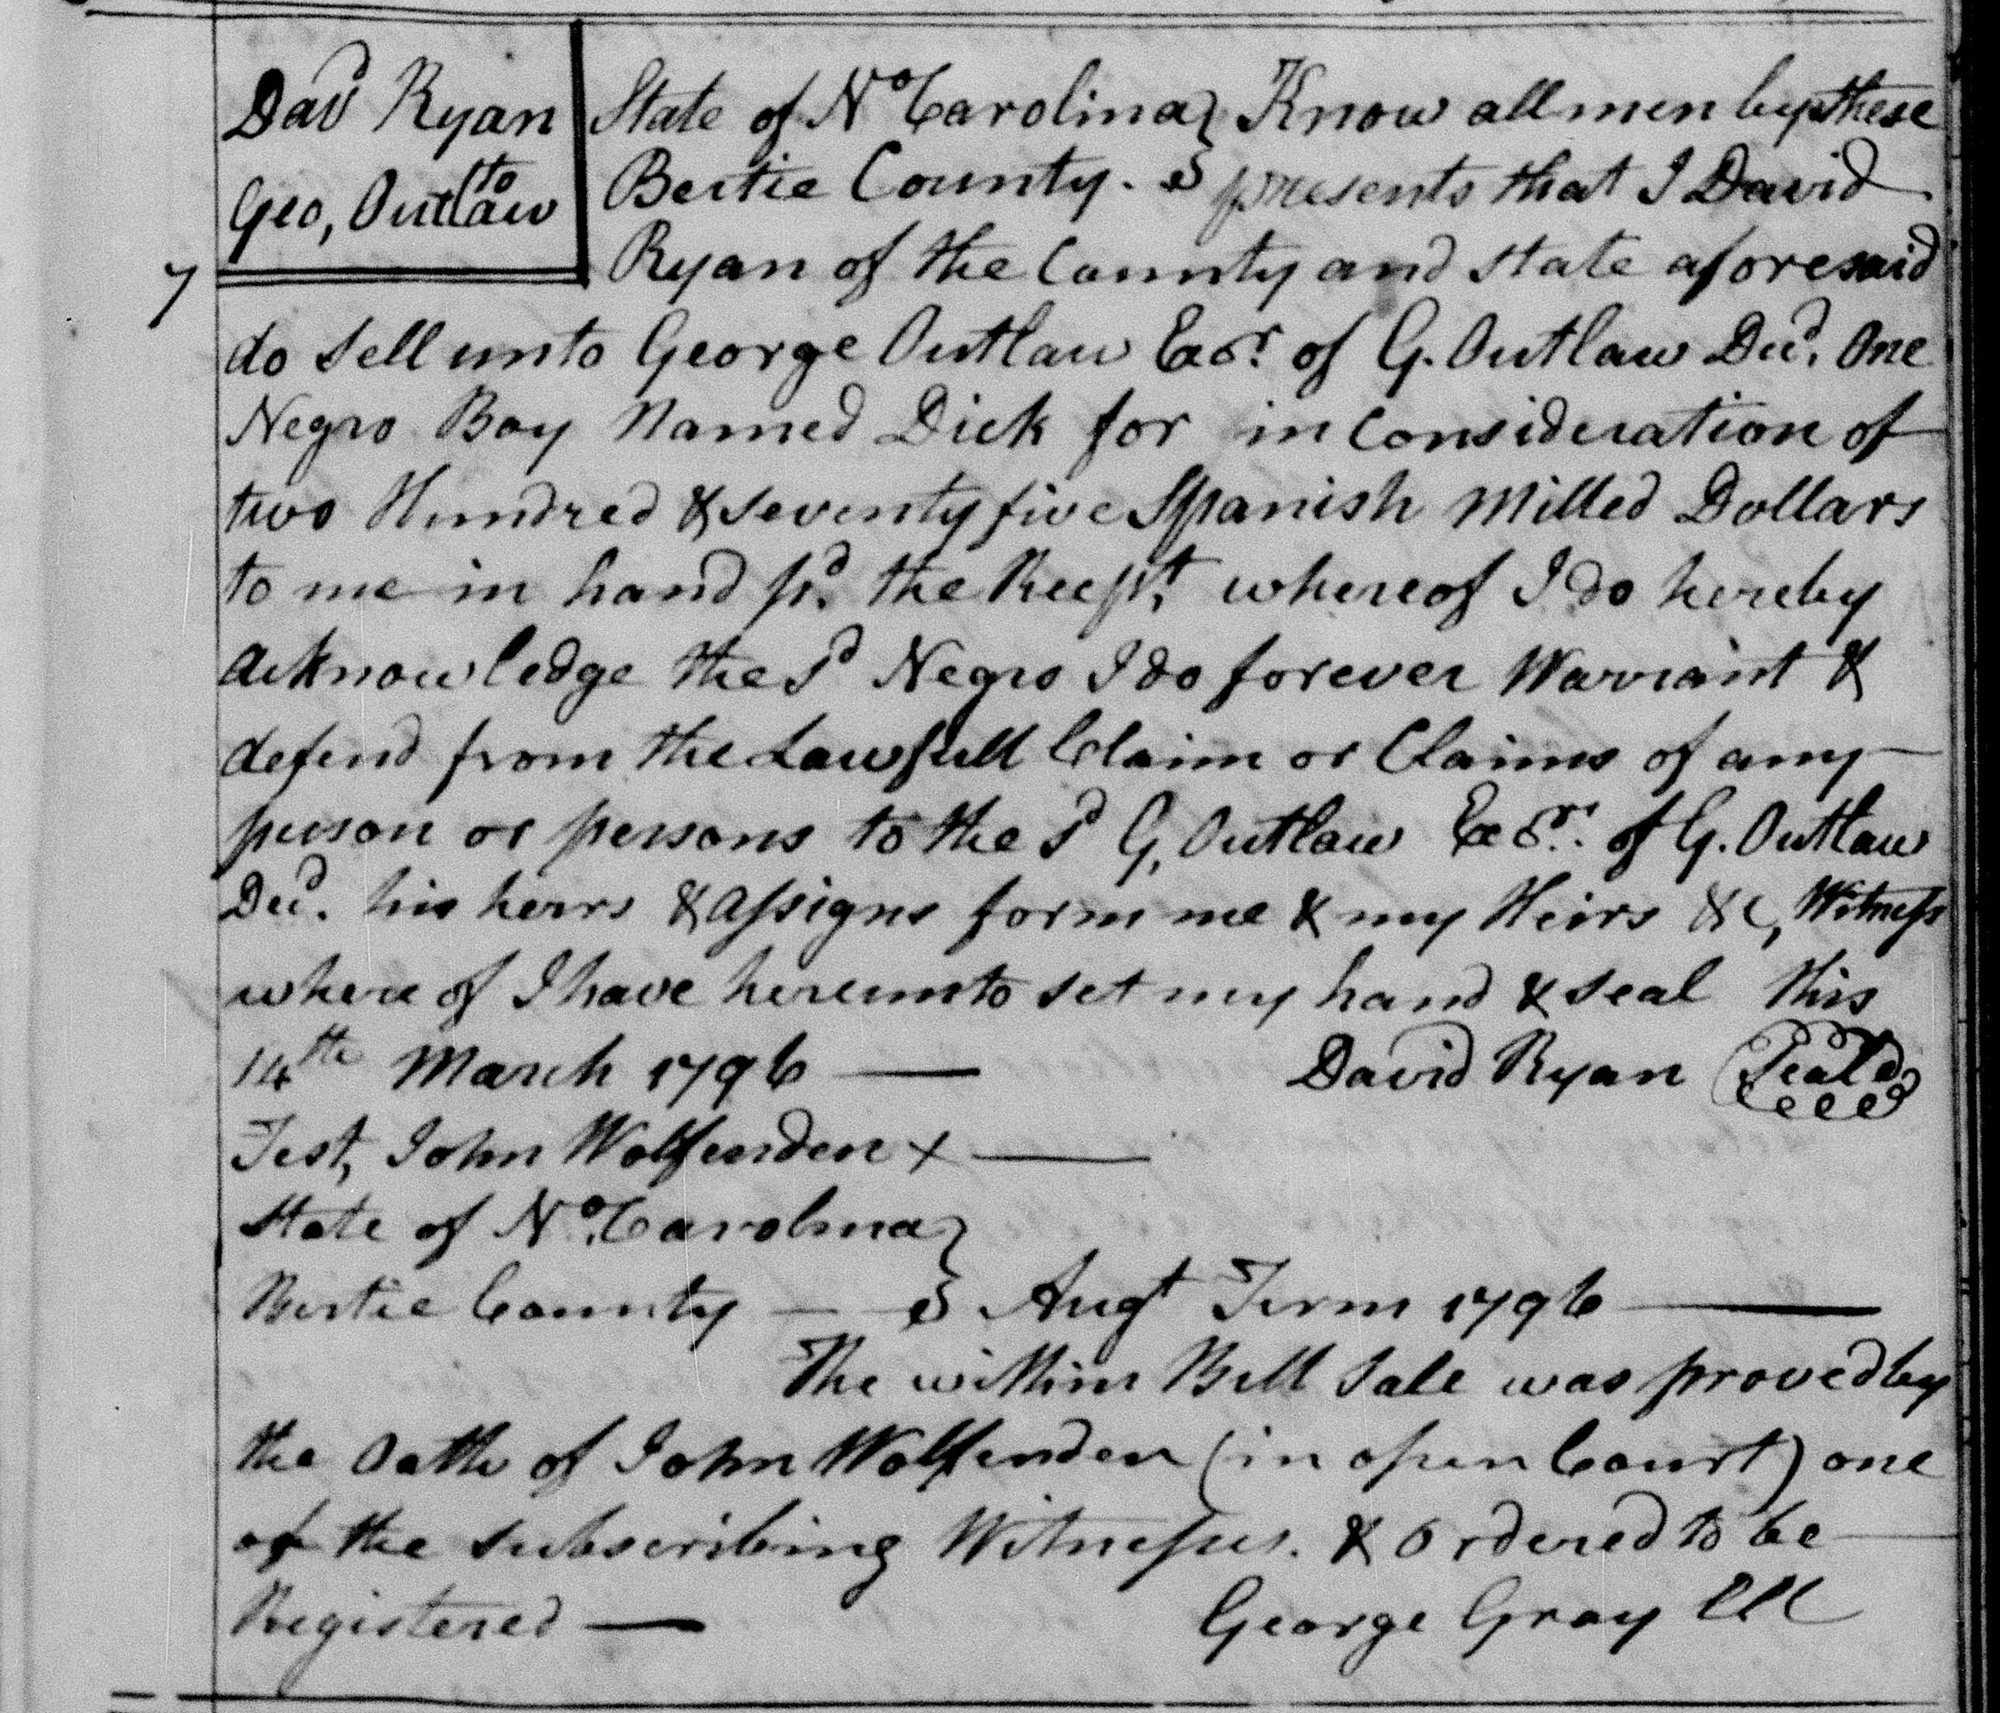 Davd Ryan
to
Geo, Outlaw
7
State of No Carolina } Know all men by these
Bertie County. } presents that I David
Ryan of the County and state aforesaid
do sell unto George Outlaw Exor. of G. Outlaw Decd. One
Negro Boy Named Dick for in Consideration of
two Hundred & seventy five Spanish Milled Dollars
to me in hand pd. the Recpt. whereof I do hereby
acknowledge the sd Negro I do forever Warrant &
defend from the Lawfull Claim or Claims of any
person or persons to the sd G, Outlaw Exor. of G. Outlaw
Decd. his heirs & assigns form me & my Heirs &c, Witness
where of I have hereunto set my hand & seal this
14th March 1796 — David Ryan Seal
Test, John Wolfenden + —
State of No. Carolina }
Bertie County — } Augt Term 1796 —
The within Bill Sale was proved by
the Oath of John Wolfenden (in open Court) one
of the subscribing Witnesses. & Ordered to be
Registered — George Gray CCC